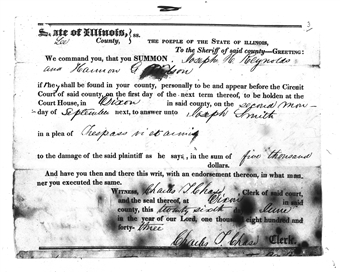 State of Illinois, } ss.
Lee County,
THE PEOPLE OF THE STATE OF ILLINOIS,
To the Sheriff of said county—GREETING:
We command you, that you SUMMON Joseph H Reynolds
and Harmon T Wilson
if they shall be found in your county, personally to be and appear before the Circuit
Court of said county, on the first day of the next term thereof, to be holden at the
Court House, in Dixon in said county, on the second mon-
day of September next, to answer unto Joseph Smith
in a plea of Trespass vi et armis
to the damage of the said plaintiff as he says, in the sum of five thousand
dollars.
And have you then and there this writ, with an endorsement thereon, in what man-
ner you executed the same.
WITNESS, Charles T. Chase Clerk of said court,
and the seal thereof, at Dixon in said
county, this twenty sixth June
in the year of our Lord, one thousand eight hundred and
forty-three
Charles T. Chase Clerk.